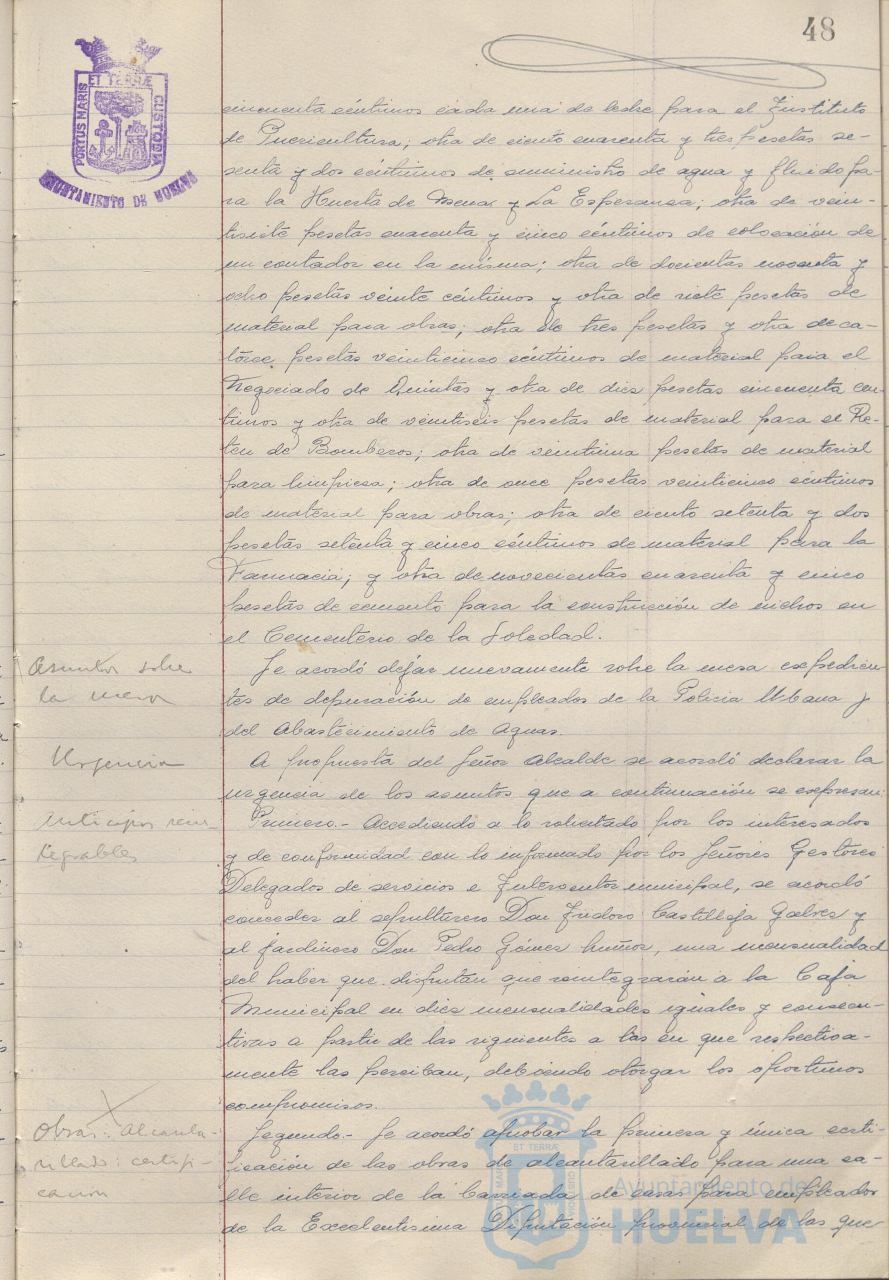 48
PORTUS MARIS ET TERRÆ CUSTODIA
AYUNTAMIENTO DE HUELVA
cincuenta céntimos cada una de leche para el Instituto
de Puericultura; otra de ciento cuarenta y tres pesetas se-
senta y dos céntimos de suministro de agua y fluido pa-
ra la Huerta de Mena y La Esperanza; otra de vein-
tisiete pesetas cuarenta y cinco céntimos de colocación de
un contador en la misma; otra de docientas noventa y
ocho pesetas veinte céntimos y otra de siete pesetas de
material para obras; otra de tres pesetas y otra de ca-
torce pesetas veinticinco céntimos de material para el
Negociado de Quintas y otra de diez pesetas cincuenta cen-
timos y otra de veintiseis pesetas de material para el Re-
ten de Bomberos; otra de veintiuna pesetas de material
para limpieza; otra de once pesetas veinticinco céntimos
de material para obras; otra de ciento setenta y dos
pesetas setenta y cinco céntimos de material para la
Farmacia; y otra de novecientas cuarenta y cinco
pesetas de cemento para la construcción de nichos en
el Cementerio de la Soledad.
Asuntos sobre
la mesa
Se acordó dejar nuevamente sobre la mesa expedien-
tes de depuración de empleados de la Policia Urbana y
del Abastecimiento de Aguas.
Urgencia
A propuesta del Señor Alcalde se acordó declarar la
urgencia de los asuntos que a continuación se expresan:
Anticipos rein-
tegrables
Primero.- Accediendo a lo solicitado por los interesados
y de conformidad con lo informado por los Señores Gestores
Delegados de servicios e Interventor municipal, se acordó
conceder al sepulturero Don Isidoro Castilleja Galvez y
al jardinero Don Pedro Gómez Muñoz, una mensualidad
del haber que disfrutan que reintegrarán a la Caja
Municipal en diez mensualidades iguales y consecu-
tivas a partir de las siguientes a las en que respectiva-
mente las perciban, debiendo otorgar los oportunos
compromisos.
Obras: Alcanta-
rillado: certifi-
cacion
Segundo.- Se acordó aprobar la primera y única certi-
ficación de las obras de alcantarillado para una ca-
lle interior de la barriada de casas para empleados
de la Excelentisima Diputación provincial de las que
Ayuntamiento de
HUELVA